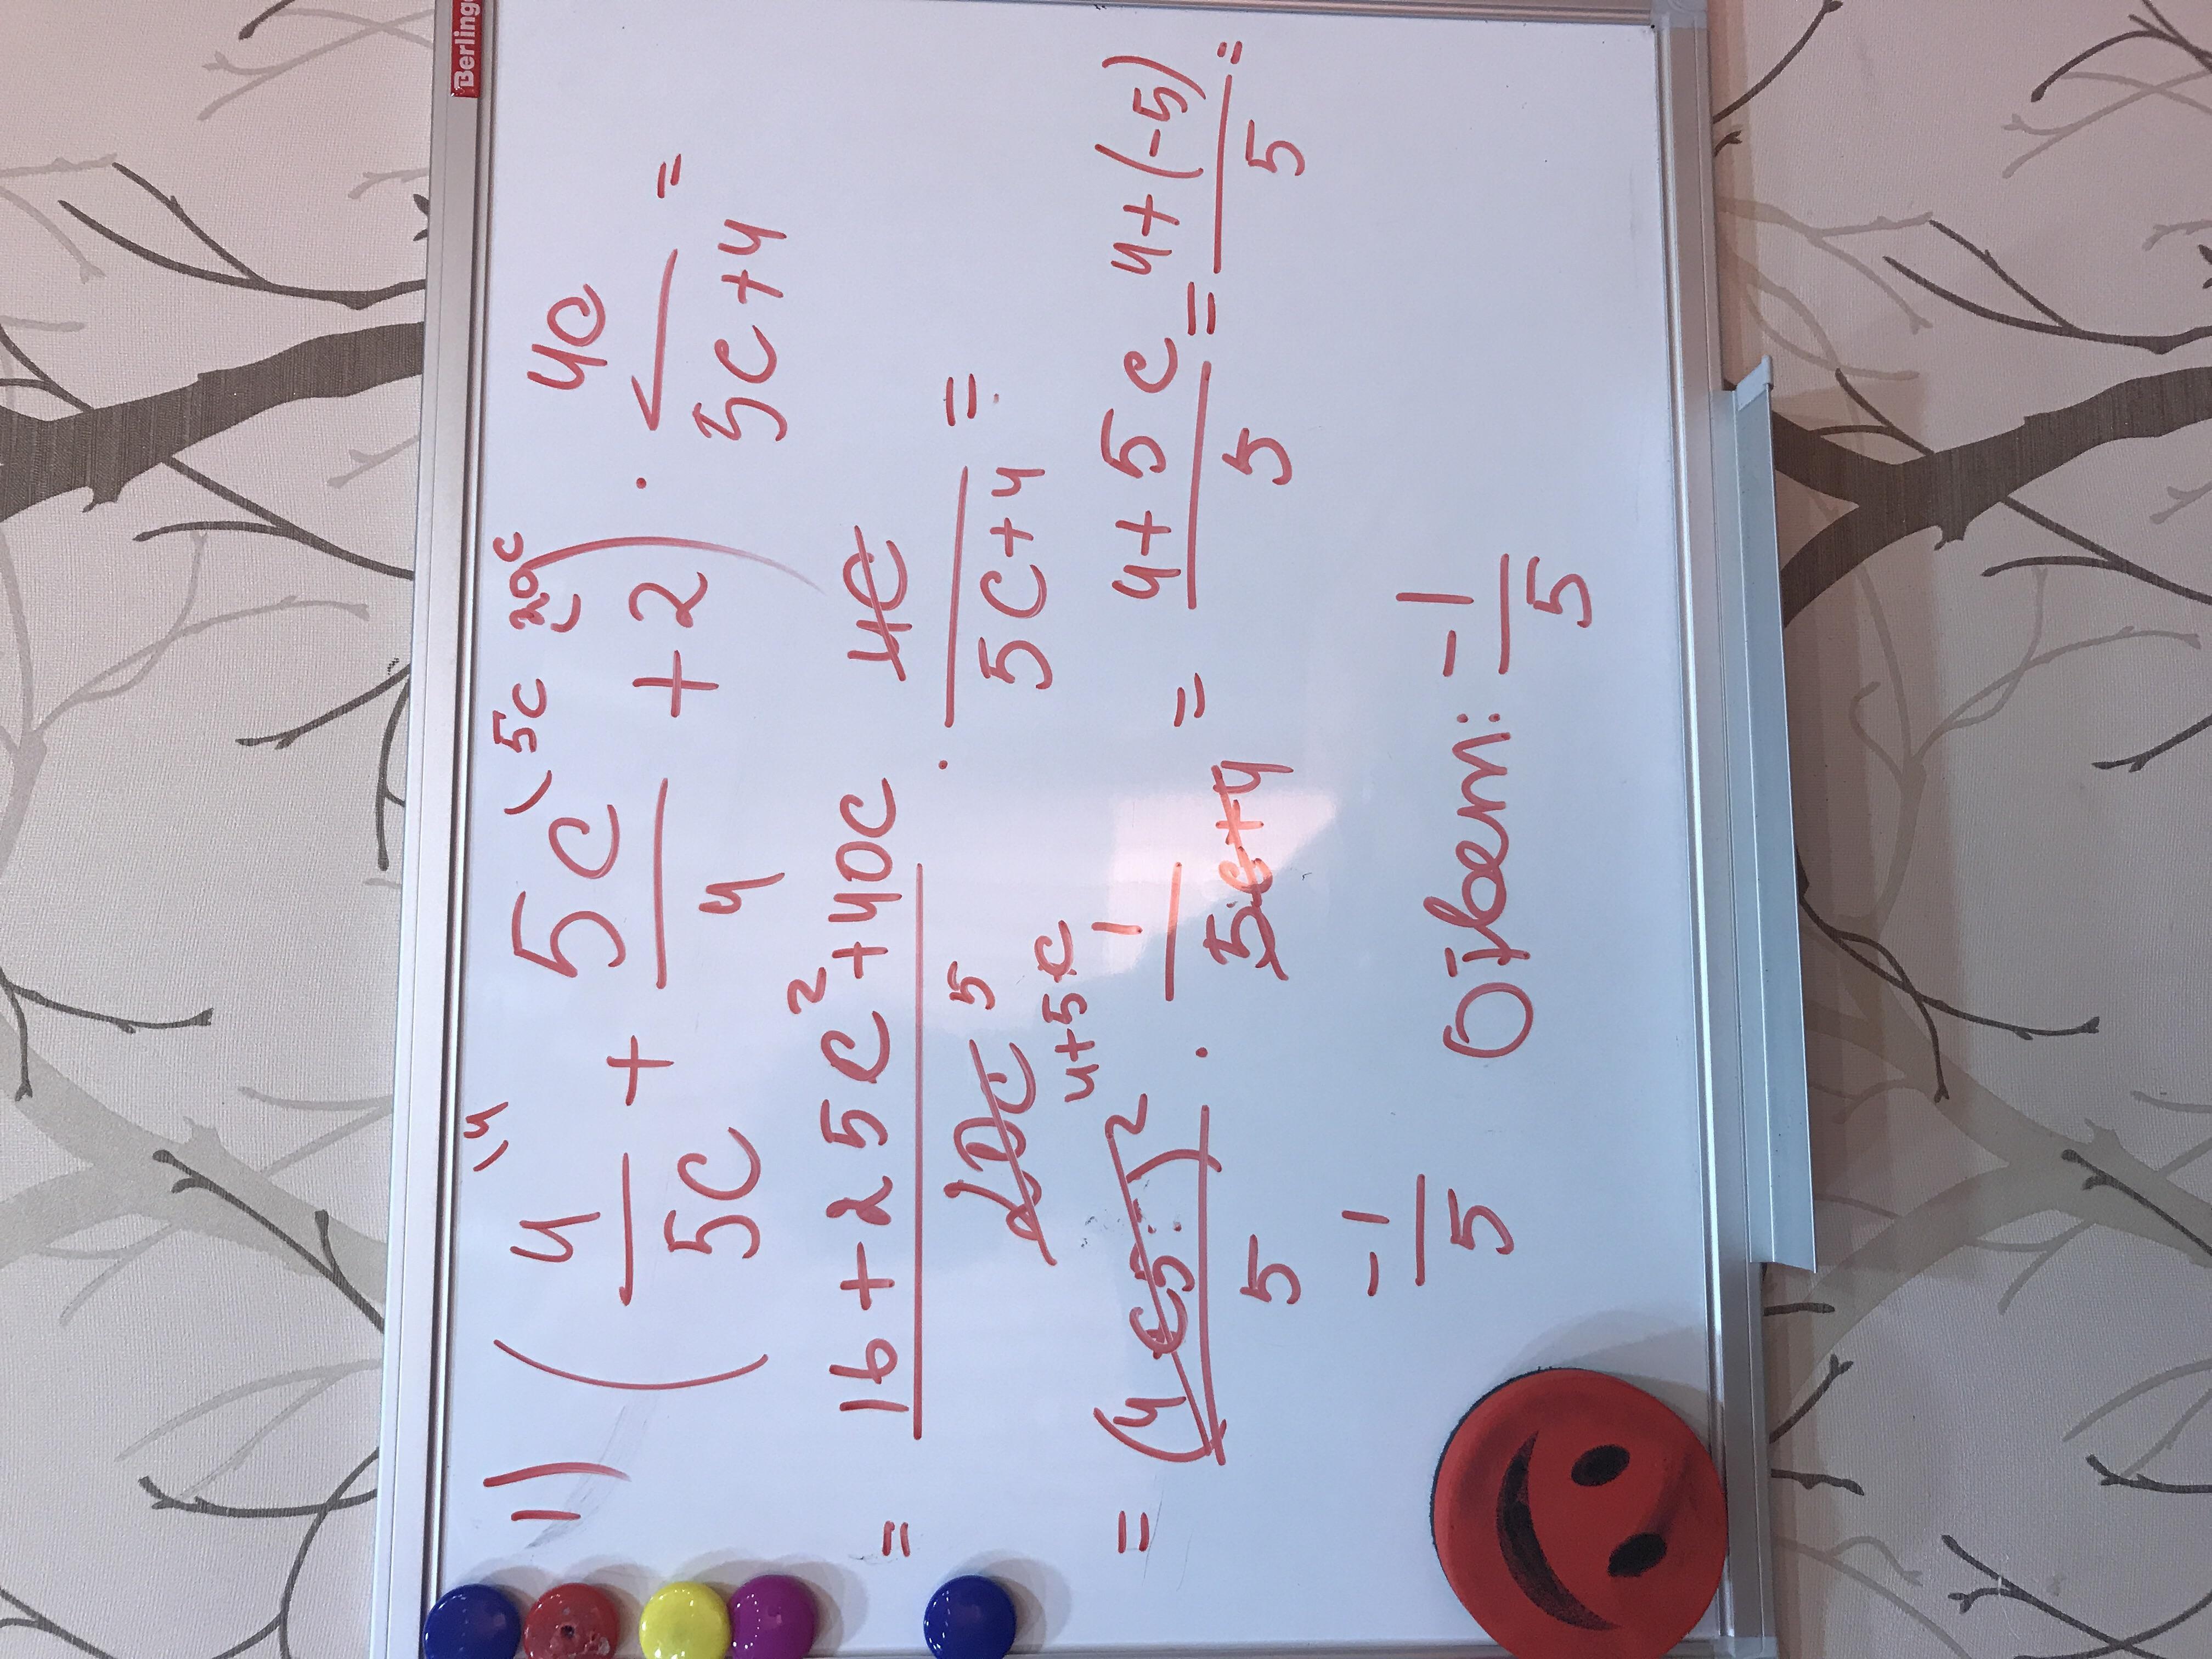 Berling
\4 \5c \20c
1) ( 4/5c + 5c/4 + 2 ) · 4c/5c+4 =
= 16+25c²+40c/20c 5 · 4c/5c+4 =
4+5c
= (4+5c)²/5 · 1/5c+4 = 4+5c/5 = 4+(-5)/5 =
-1/5 Ответ: -1/5